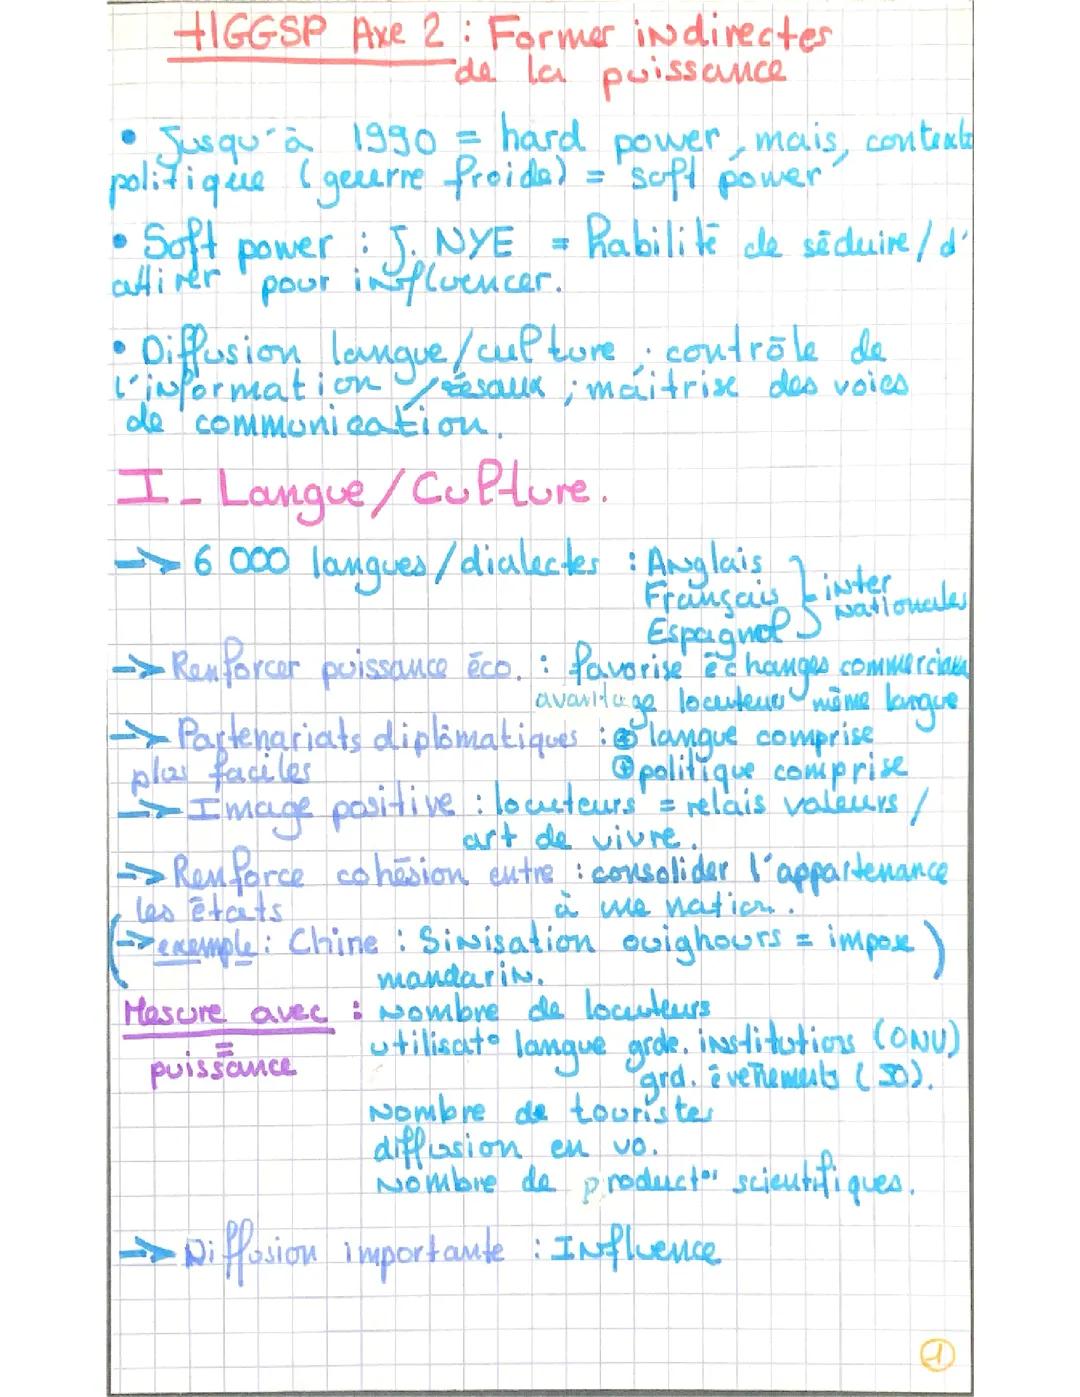 HGGSP Axe 2 : Formes indirectes
de la puissance
• Jusqu'à 1990 = hard power, mais, contexte
politique (geuerre froide) = soft power
• Soft power : J. NYE = habilité de séduire / d'
attirer pour influencer.
• Diffusion langue/culture ; contrôle de
l'information / résaux ; maitrise des voies
de communication.
I - Langue / Culture.
→ 6 000 langues / dialectes : Anglais
Français
Espagnol
inter
nationales
→ Renforcer puissance éco. : favorise échanges commerciaux
avantage locuteur même langue
→ Partenariats diplômatiques : ⊕ langue comprise
plus faciles ⊕ politique comprise
→ Image positive : locuteurs = relais valeurs /
art de vivre.
→ Renforce cohésion entre : consolider l'appartenance
les états à une nation.
(→ exemple : Chine : Sinisation ouighours = impose)
mandarin.
Mesure avec : Nombre de locuteurs
= utilisat° langue grde. institutions (ONU)
puissance grd. évènements (JO).
Nombre de touristes
diffusion en vo.
Nombre de product°s scientifiques.
→ Diffusion importante : Influence
1